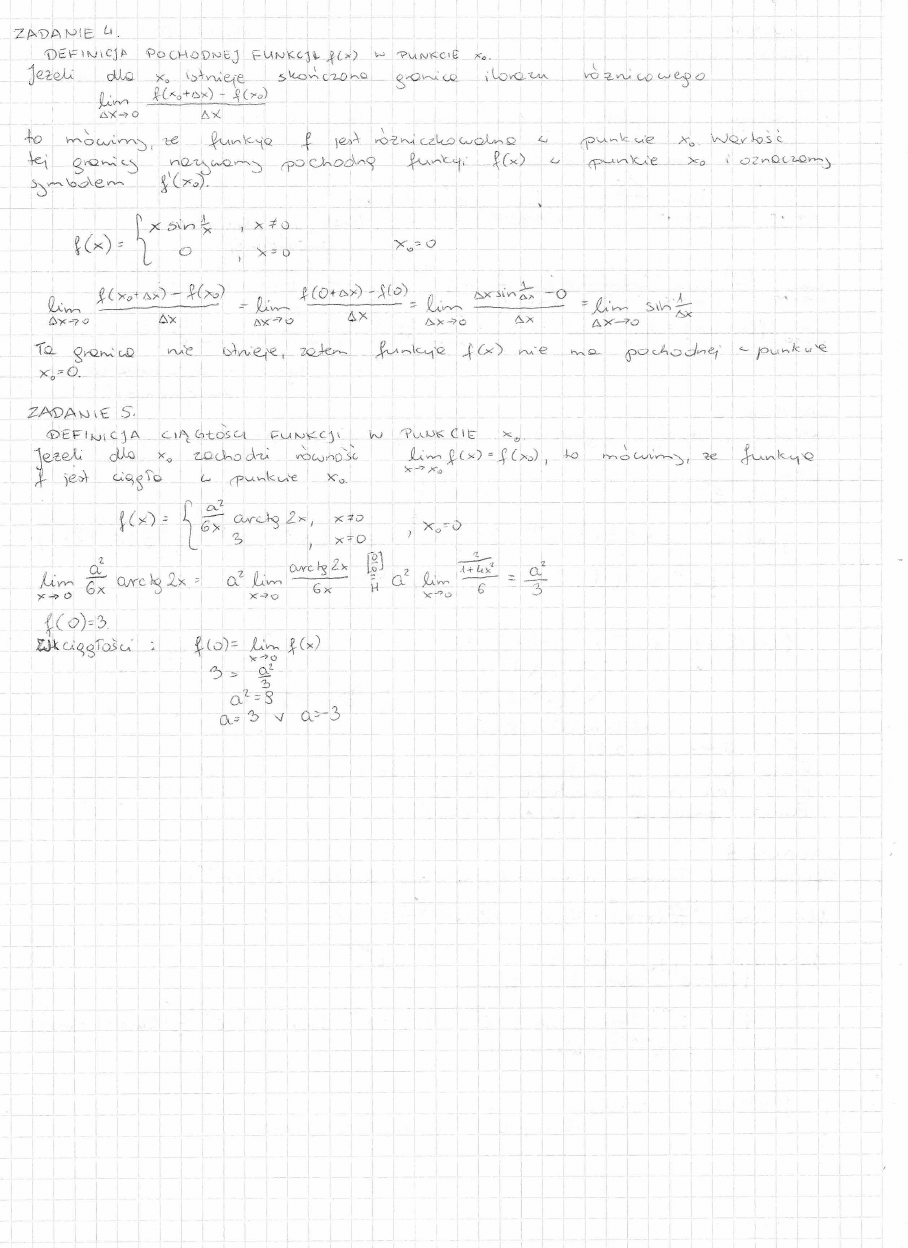 ZADANIE 4.
DEFINICJA POCHODNEJ FUNKCJI f(x) W PUNKCIE x₀.
Jeżeli dla x₀ istnieje skończona granica ilorazu różnicowego
lim_{Δx→0} (f(x₀+Δx) - f(x₀))/Δx
to mówimy, że funkcja f jest różniczkowalna w punkcie x₀. Wartość
tej granicy nazywamy pochodną funkcji f(x) w punkcie x₀ i oznaczamy
symbolem f'(x₀).
f(x) = { x sin 1/x , x≠0
0 , x=0 x₀=0
lim_{Δx→0} (f(x₀+Δx) - f(x₀))/Δx = lim_{Δx→0} (f(0+Δx) - f(0))/Δx = lim_{Δx→0} (Δx sin 1/Δx - 0)/Δx = lim_{Δx→0} sin 1/Δx
Ta granica nie istnieje, zatem funkcja f(x) nie ma pochodnej w punkcie
x₀=0.
ZADANIE 5.
DEFINICJA CIĄGŁOŚCI FUNKCJI W PUNKCIE x₀
Jeżeli dla x₀ zachodzi równość lim_{x→x₀} f(x) = f(x₀), to mówimy, że funkcja
f jest ciągła w punkcie x₀
f(x) = { a²/6x arctg 2x, x≠0
3 , x=0 , x₀=0
lim_{x→0} a²/6x arctg 2x = a² lim_{x→0} (arctg 2x)/6x =^{[0/0]}_{H} a² lim_{x→0} (2/(1+4x²))/6 = a²/3
f(0)=3
ciągłości : f(0) = lim_{x→0} f(x)
3 = a²/3
a² = 9
a = 3 ∨ a = -3